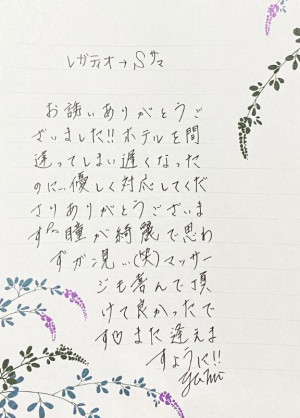 レガティオ→Sサマ
お誘いありがとうご
ざいました!!ホテルを間
違ってしまい遅くなった
のに…優しく対応してくだ
さりありがとうございま
す°°瞳が綺麗で思わ
ずガン見…(笑)マッサー
ジも喜んで頂
けて良かったで
す♡また逢えま
すように!!
yumi